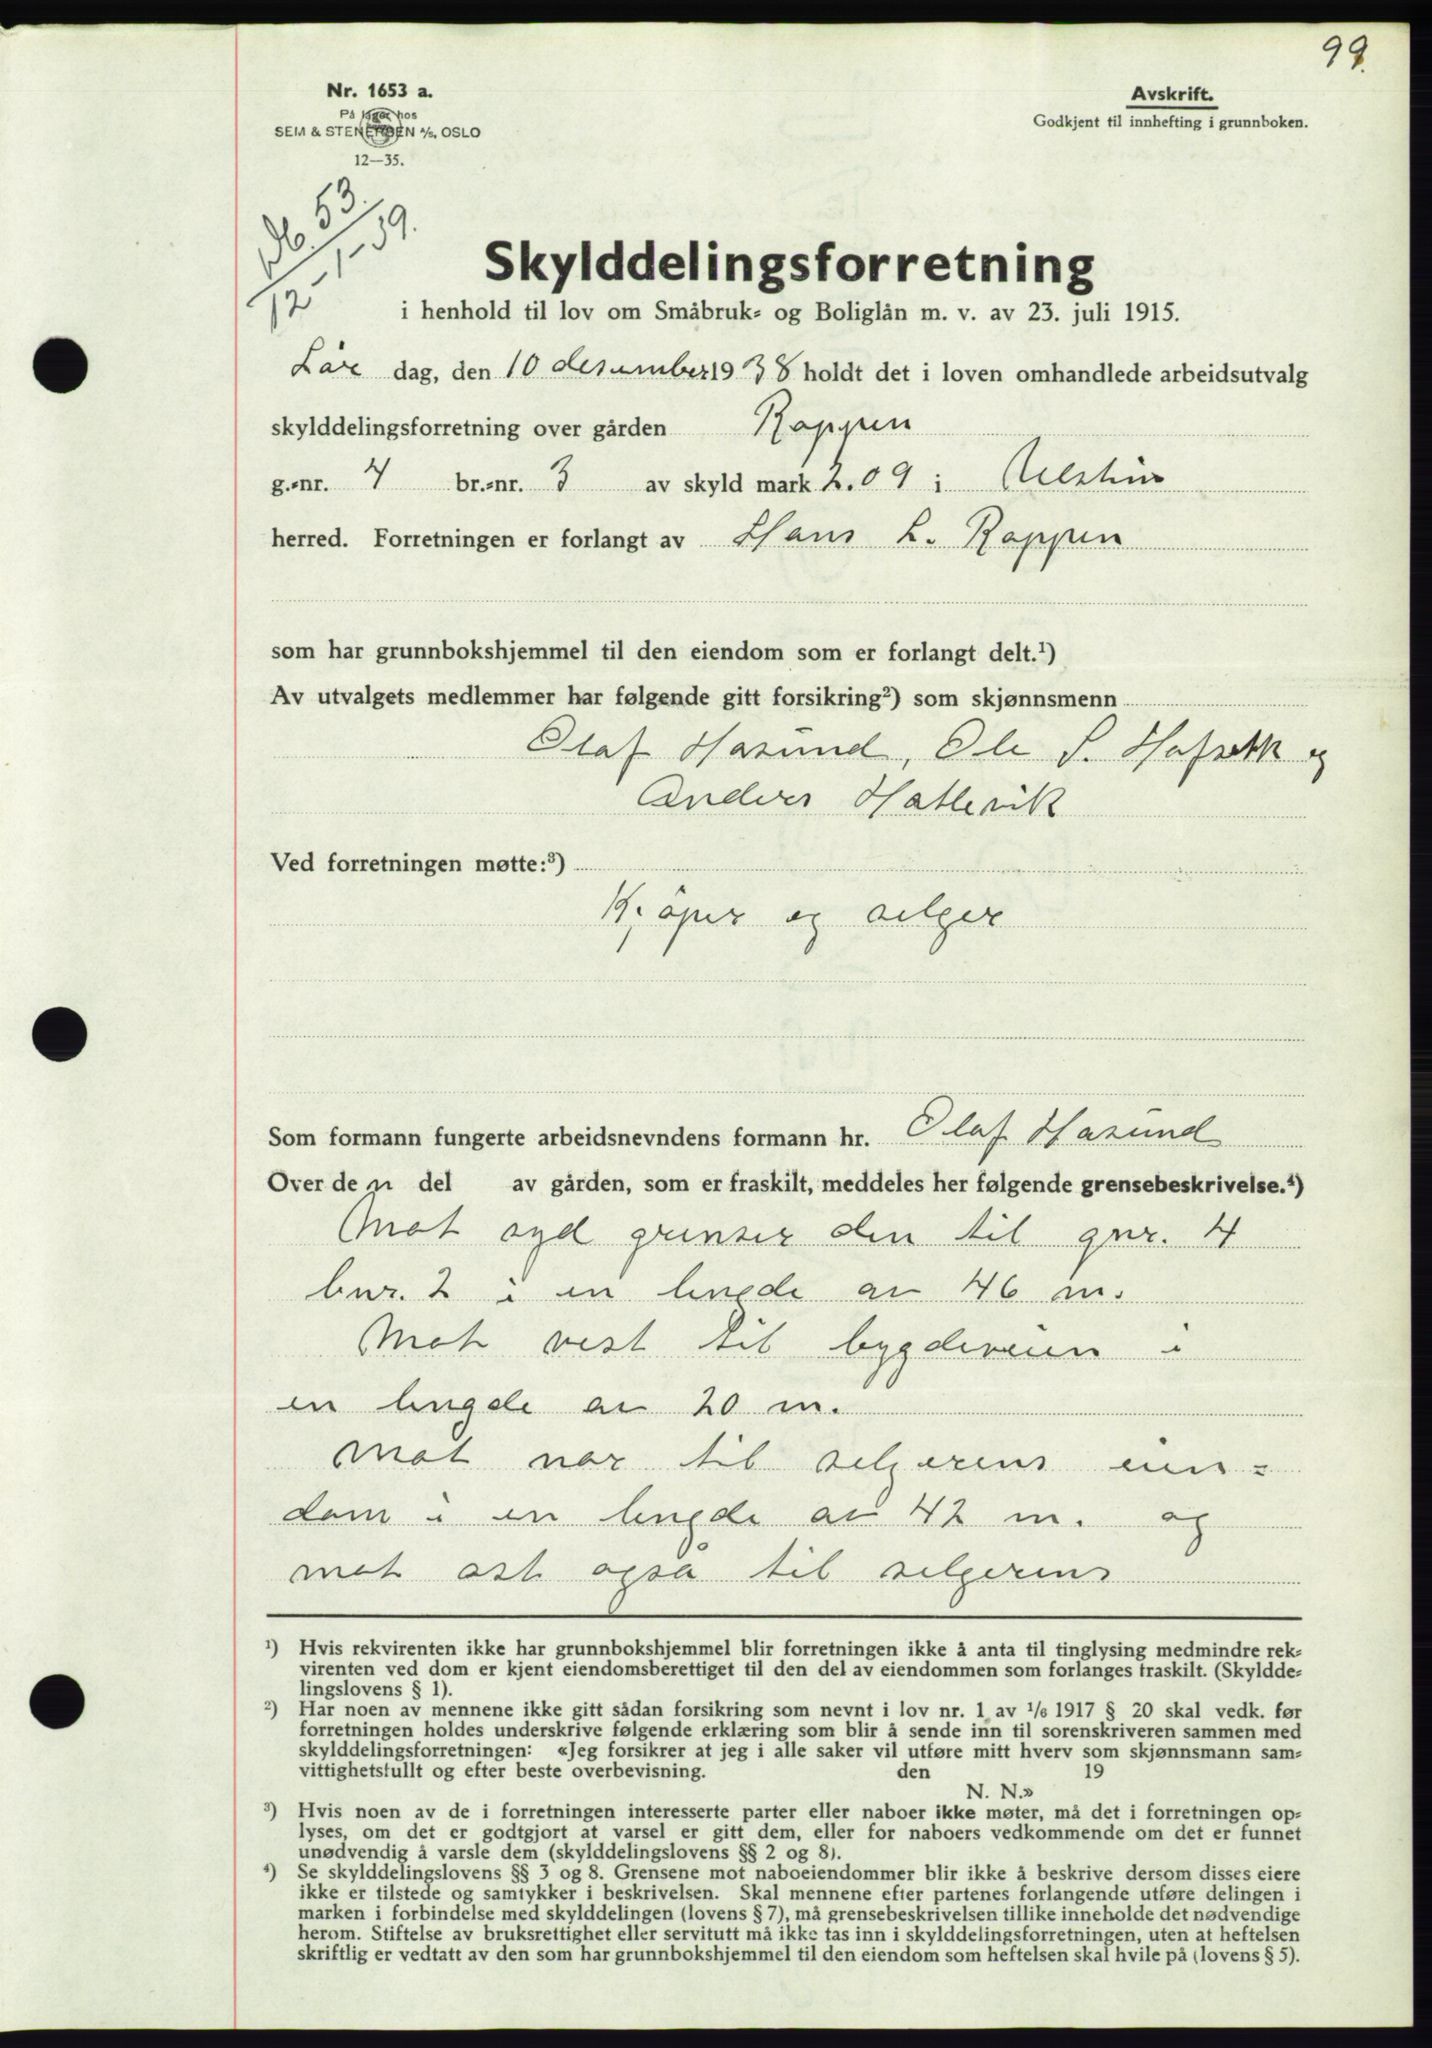 99.
Nr. 1653 a.
På lager hos
SEM & STENERSEN A/S, OSLO
12—35.
Avskrift.
Godkjent til innhefting i grunnboken.
Db. 53.
12-1-39.
Skylddelingsforretning
i henhold til lov om Småbruk- og Boliglån m. v. av 23. juli 1915.
Lør dag, den 10 desember 1938 holdt det i loven omhandlede arbeidsutvalg
skylddelingsforretning over gården Roppen
g.-nr. 4 br.-nr. 3 av skyld mark 2.09 i Ulstein
herred. Forretningen er forlangt av Hans L. Roppen
som har grunnbokshjemmel til den eiendom som er forlangt delt.¹)
Av utvalgets medlemmer har følgende gitt forsikring²) som skjønnsmenn
Olaf Hasund, Ole S. Hofseth og
Anders Hatlevik
Ved forretningen møtte:³)
Kjøper og selger
Som formann fungerte arbeidsnevndens formann hr. Olaf Hasund
Over den del av gården, som er fraskilt, meddeles her følgende grensebeskrivelse.⁴)
Mot syd grenser den til gnr. 4
bnr. 2 i en lengde av 46 m.
Mot vest til bygdeveien i
en lengde av 20 m.
Mot nor til selgerens eien=
dom i en lengde av 42 m. og
mot ost også til selgerens
¹) Hvis rekvirenten ikke har grunnbokshjemmel blir forretningen ikke å anta til tinglysing medmindre rek-
virenten ved dom er kjent eiendomsberettiget til den del av eiendommen som forlanges fraskilt. (Skyldde-
lingslovens § 1).
²) Har noen av mennene ikke gitt sådan forsikring som nevnt i lov nr. 1 av 1/6 1917 § 20 skal vedk. før
forretningen holdes underskrive følgende erklæring som blir å sende inn til sorenskriveren sammen med
skylddelingsforretningen: «Jeg forsikrer at jeg i alle saker vil utføre mitt hverv som skjønnsmann sam-
vittighetsfullt og efter beste overbevisning. den 19
N. N.»
³) Hvis noen av de i forretningen interesserte parter eller naboer ikke møter, må det i forretningen op-
lyses, om det er godtgjort at varsel er gitt dem, eller for naboers vedkommende om det er funnet
unødvendig å varsle dem (skylddelingslovens §§ 2 og 8).
⁴) Se skylddelingslovens §§ 3 og 8. Grensene mot naboeiendommer blir ikke å beskrive dersom disses eiere
ikke er tilstede og samtykker i beskrivelsen. Skal mennene efter partenes forlangende utføre delingen i
marken i forbindelse med skylddelingen (lovens § 7), må grensebeskrivelsen tillike inneholde det nødvendige
herom. Stiftelse av bruksrettighet eller servitutt må ikke tas inn i skylddelingsforretningen, uten at heftelsen
skriftlig er vedtatt av den som har grunnbokshjemmel til den eiendom som heftelsen skal hvile på (lovens § 5).